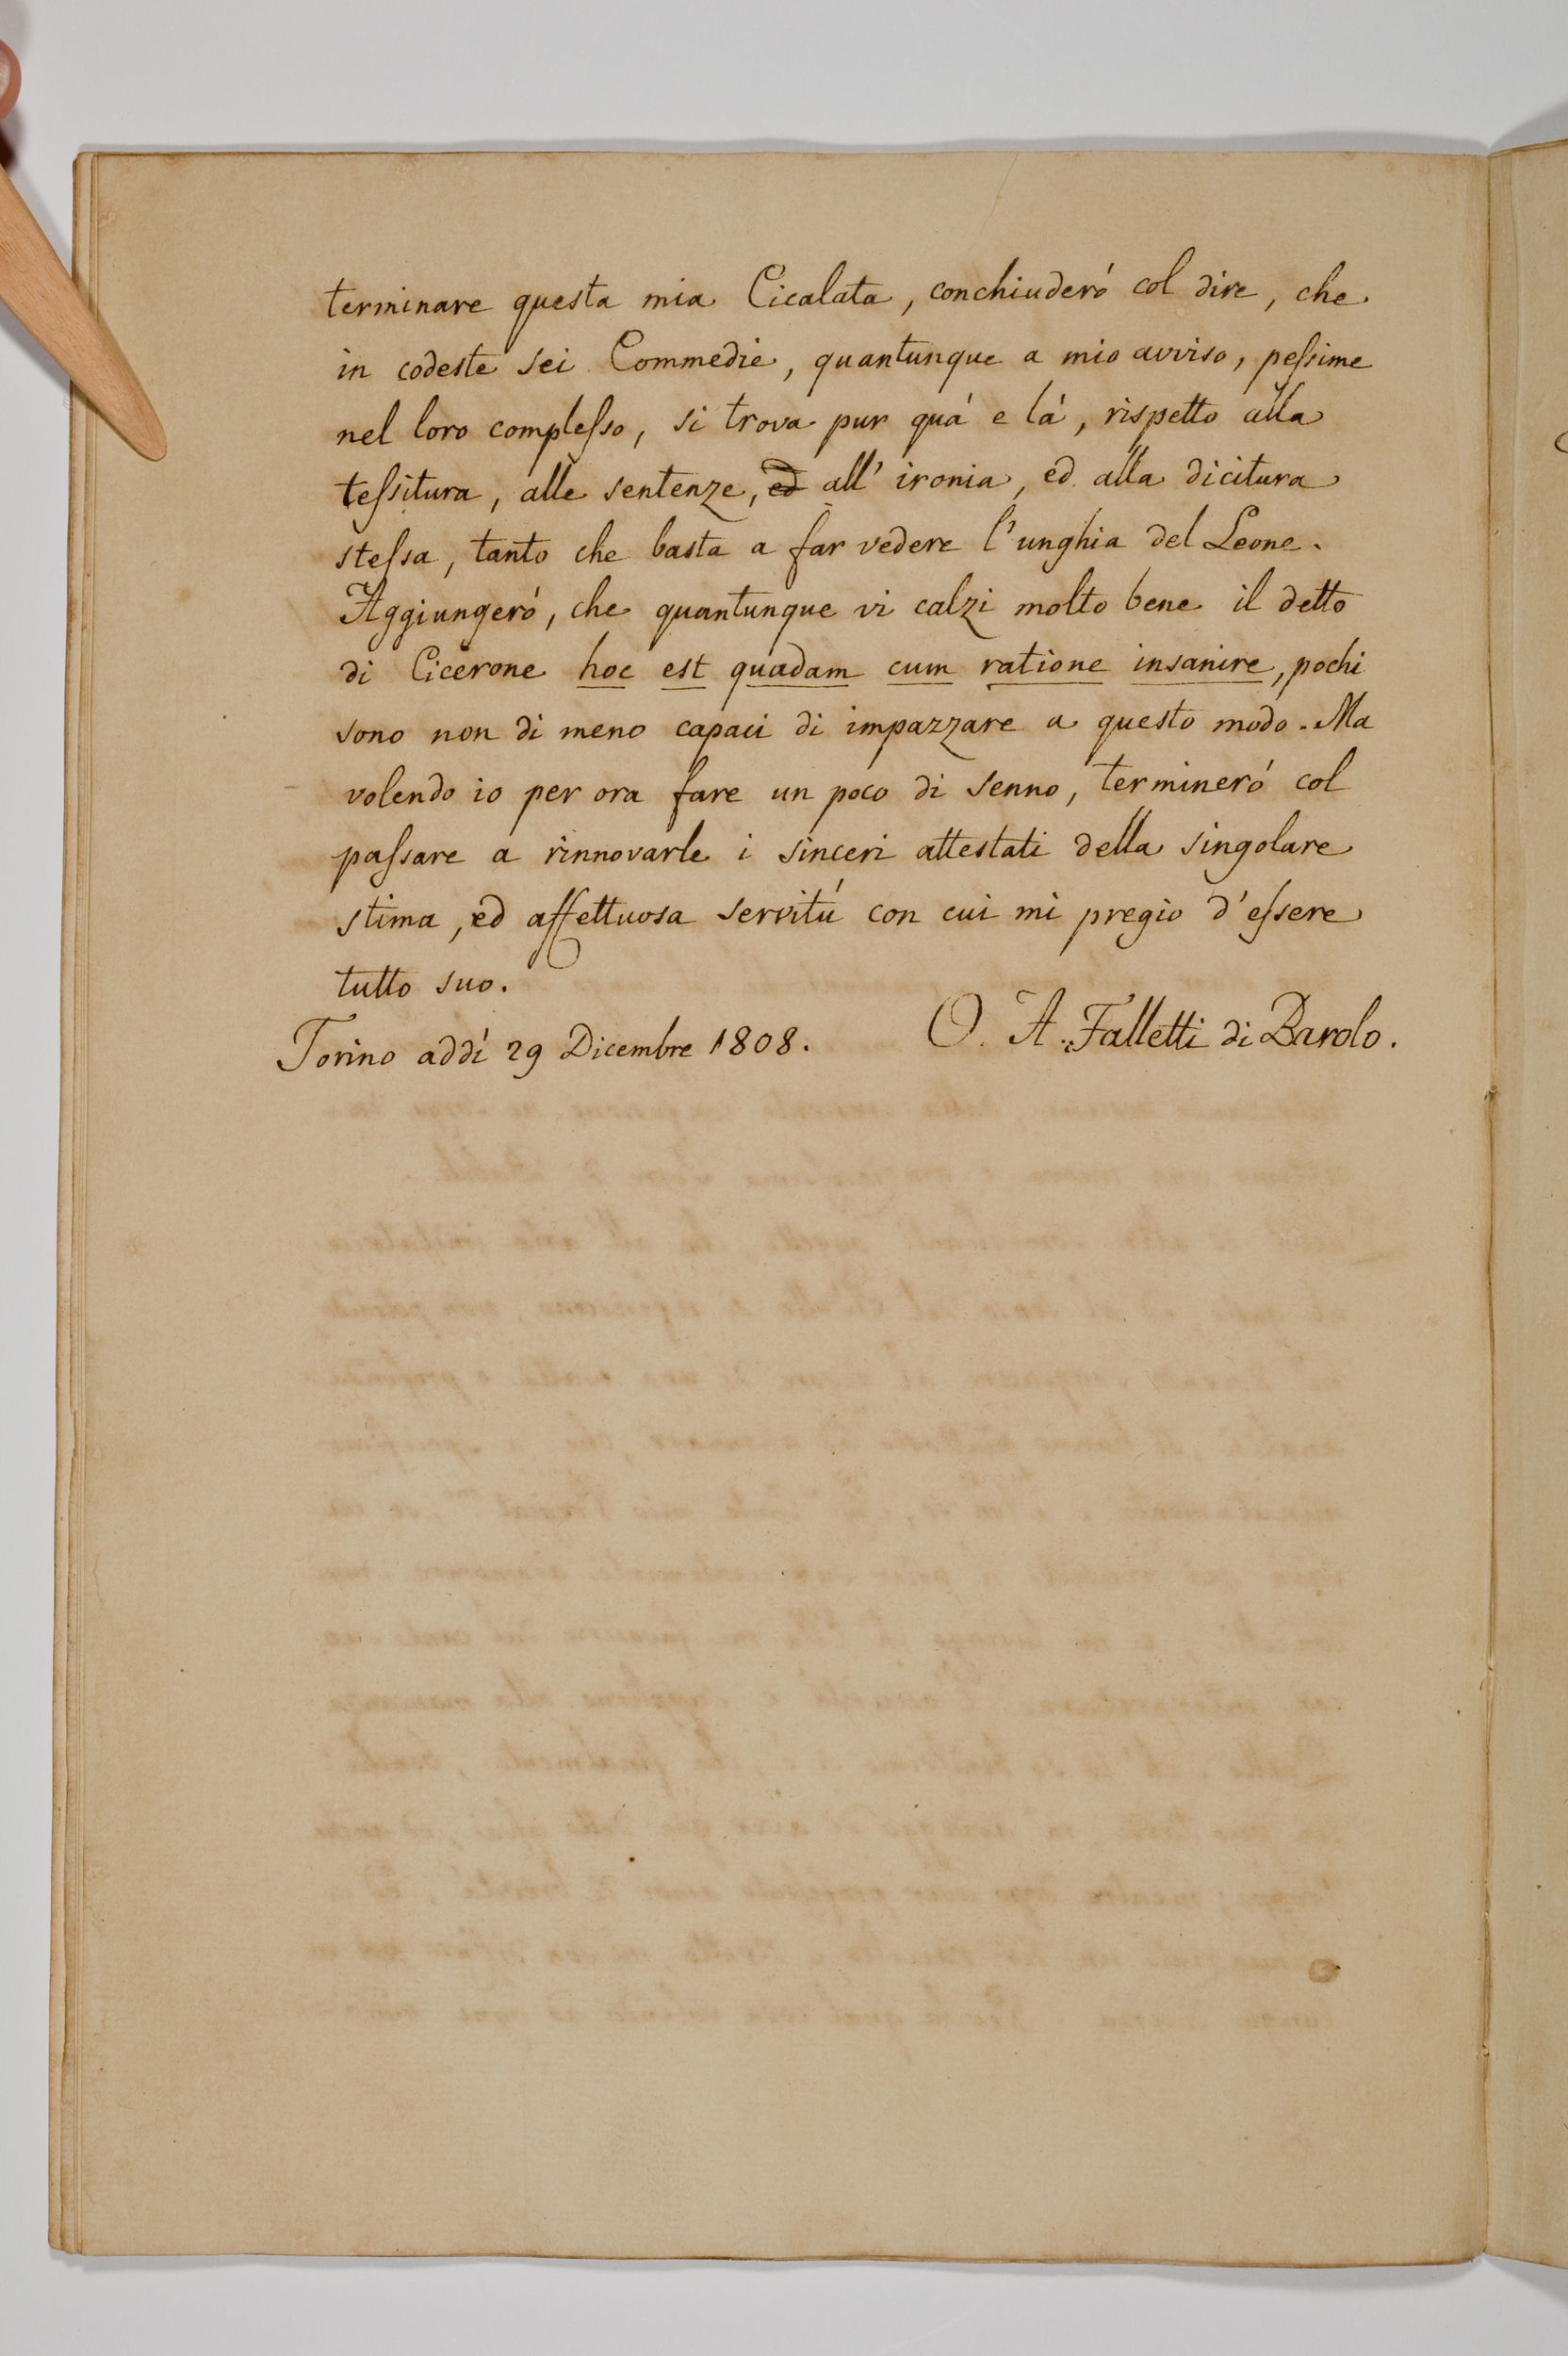 terminare questa mia Cicalata, conchiuderó col dire, che
in codeste sei Commedie, quantunque a mio avviso, peſsime
nel loro compleſso, si trova pur quá e lá, rispetto alla
teſsitura, alle sentenze, ed all' ironia, ed alla dicitura
steſsa, tanto che basta a far vedere l'unghia del Leone.
Aggiungeró, che quantunque vi calzi molto bene il detto
di Cicerone hoc est quadam cum ratione insanire, pochi
sono non di meno capaci di impazzare a questo modo. Ma
volendo io per ora fare un poco di senno, termineró col
paſsare a rinnovarle i sinceri attestati della singolare
stima, ed affettuosa servitú con cui mi pregio d'eſsere
tutto suo.
O. A. Falletti di Barolo.
Torino addí 29 Dicembre 1808.